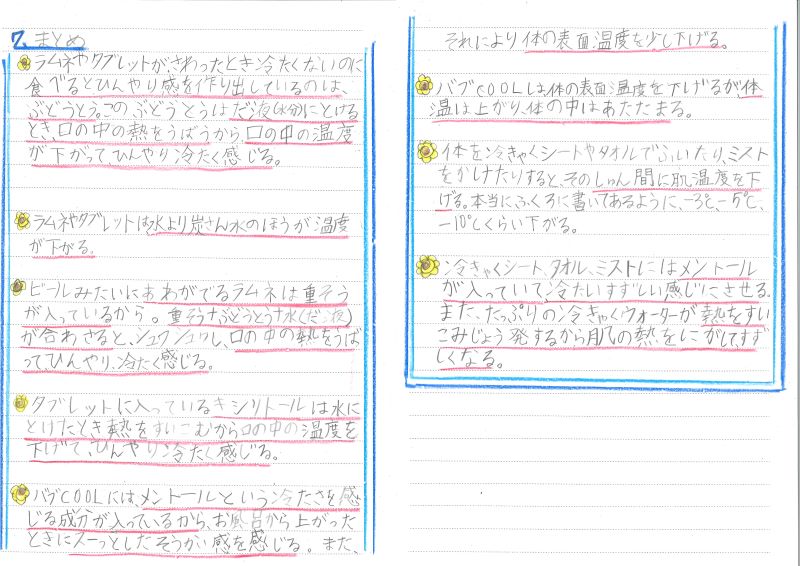 7. まとめ
ラムネやタブレットがさわったとき冷たくないのに
食べるとひんやり感を作り出しているのは、
ぶどうとう。このぶどうとうはだ液(水分)にとける
とき、口の中の熱をうばうから、口の中の温度
が下がって、ひんやり冷たく感じる。
ラムネやタブレットは水より炭さん水のほうが温度
が下がる。
ビールみたいにあわがでるラムネは重そう
が入っているから。重そう+ぶどうとう+水(だ液)
が合わさると、シュワシュワし、口の中の熱をうば
って、ひんやり、冷たく感じる。
タブレットに入っているキシリトールは水に
とけたとき熱をすいこむから口の中の温度を
下げて、ひんやり冷たく感じる。
バブCOOLには、メントールという冷たさを感
じる成分が入っているから、お風呂から上がった
ときにスーッとしたそうかい感を感じる。また、
それにより体の表面温度を少し下げる。
バブCOOLは体の表面温度を下げるが、体
温は上がり、体の中はあたたまる。
体を冷きゃくシートやタオルでふいたり、ミスト
をかけたりすると、そのしゅん間に肌温度を下
げる。本当にふくろに書いてあるように、-3℃-5℃、
-10℃くらい下がる。
冷きゃくシート、タオル、ミストにはメントール
が入っていて、冷たいすずしい感じにさせる。
また、たっぷりの冷きゃくウォーターが熱をすい
こみじょう発するから肌の熱をにがしてすず
しくなる。